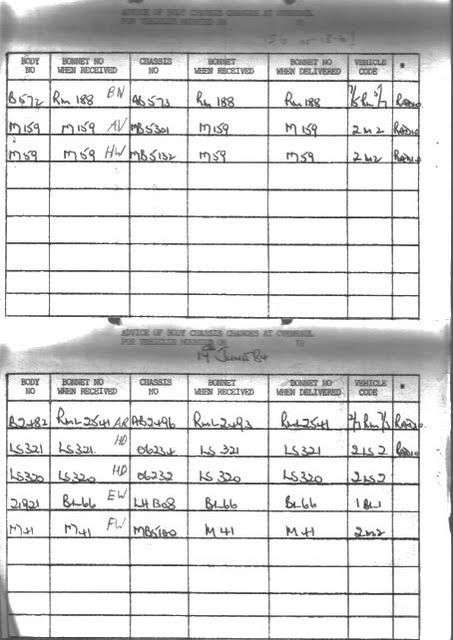 ADVICE OF BODY CHASSIS CHANGES AT OVERHAUL
FOR VEHICLES RECEIVED ON 19
BODY NO BONNET NO WHEN RECEIVED CHASSIS NO BONNET WHEN RECEIVED BONNET NO WHEN DELIVERED VEHICLE CODE *
B572 Rm 188 BN AB573 Rm 188 Rm 188 RADIO
M159 M159 AV MB5301 M159 M159 2M2 RADIO
M59 M59 HW MB5132 M59 M59 2M2 RADIO
ADVICE OF BODY CHASSIS CHANGES AT OVERHAUL
FOR VEHICLES RECEIVED ON 19
19 June 84
BODY NO BONNET NO WHEN RECEIVED CHASSIS NO BONNET WHEN RECEIVED BONNET NO WHEN DELIVERED VEHICLE CODE *
B2482 RmL2541 AR AB2496 RmL2493 RmL2541 RADIO
LS321 LS321 HD 06234 LS 321 LS321 2LS2 RADIO
LS320 LS320 HD 06232 LS 320 LS320 2LS2
21921 BL66 EW LH1308 BL66 BL66 1BL1
M41 M41 FW MB5180 M41 M41 2M2